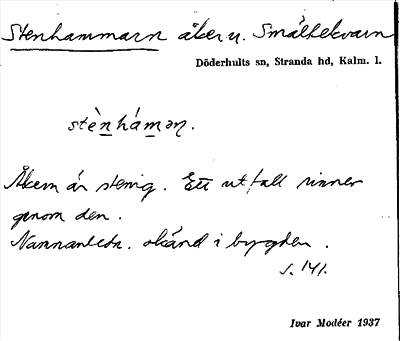 Stenhammarn åker u. Smältekvarn
Döderhults sn, Stranda hd, Kalm. l.
stènhámən.
Åkern är stenig. Ett utfall rinner
genom den.
Namnanledn. okänd i bygden.
s. 141.
Ivar Modéer 1937